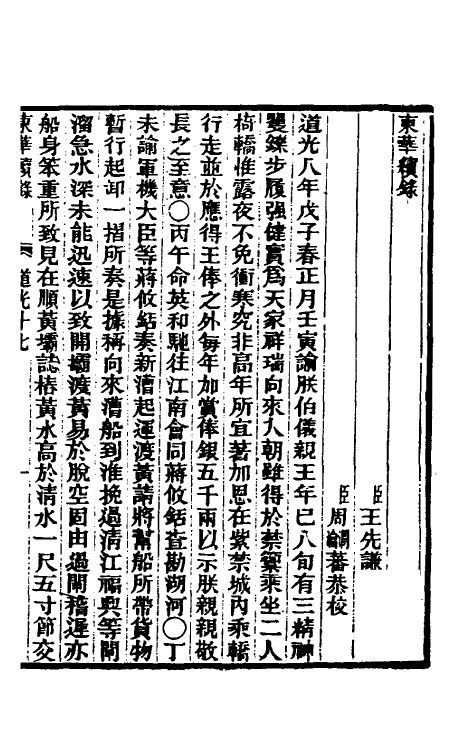 東華續錄
臣王先謙
臣周瀹蕃恭校
道光八年戊子春正月壬寅諭朕伯儀親王年已八旬有三精神
矍鑠步履强健實爲天家祥瑞向來入朝雖得於禁籞乘坐二人
椅轎惟露夜不免衝寒究非高年所宜著加恩在紫禁城內乘轎
行走並於應得王俸之外每年加賞俸銀五千兩以示朕親親敬
長之至意〇丙午命英和馳往江南會同蔣攸銛查勘湖河〇丁
未諭軍機大臣等蔣攸銛奏新漕起運渡黃請將幫船所帶貨物
暫行起卸一摺所奏是據稱向來漕船到淮挽過清江福興等閘
溜急水深未能迅速以致開壩渡黃易於脫空固由過閘稽遲亦
船身笨重所致見在順黃壩誌樁黃水高於清水一尺五寸節交
東華續錄 道光十七 一